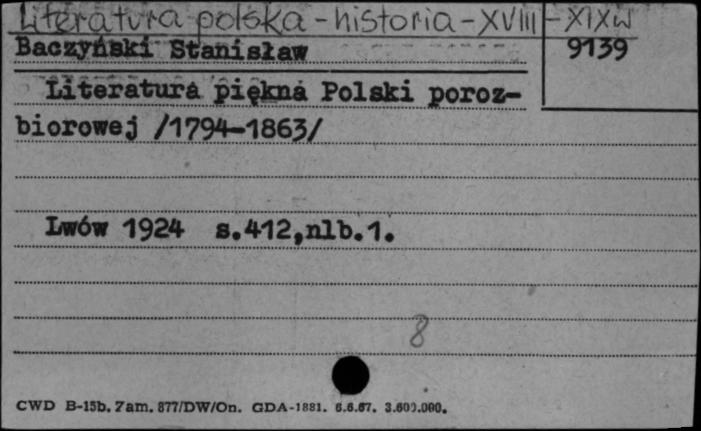 Literatura polska - historia - XVIII - XIXw
Baczyński Stanisław
9139
Literatura piękna Polski poroz-
biorowej /1794-1863/
Lwów 1924 s.412,nlb.1.
8
CWD B-15b. Zam. 877/DW/On. GDA-1881. 6.6.67. 3.600.000.